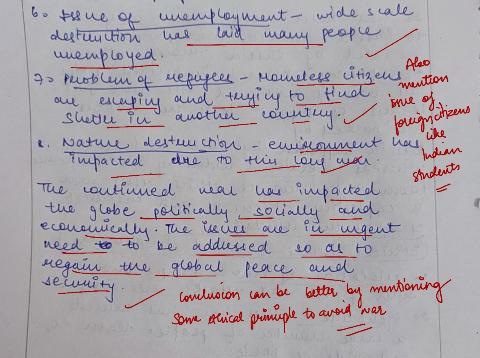 6. Issue of unemployment - wide scale
destruction has laid many people
unemployed.
7. Problem of refugees - Homeless citizens
are escaping and trying to find
shelter in another country.
Also
mention
issue of
foreign citizens
like
Indian
students
8. Nature destruction - environment has
impacted due to this long war.
The continued war has impacted
the globe politically, socially and
economically. The issues are in urgent
need to to be addressed so as to
regain the global peace and
security.
Conclusion can be better by mentioning
some ethical principle to avoid war